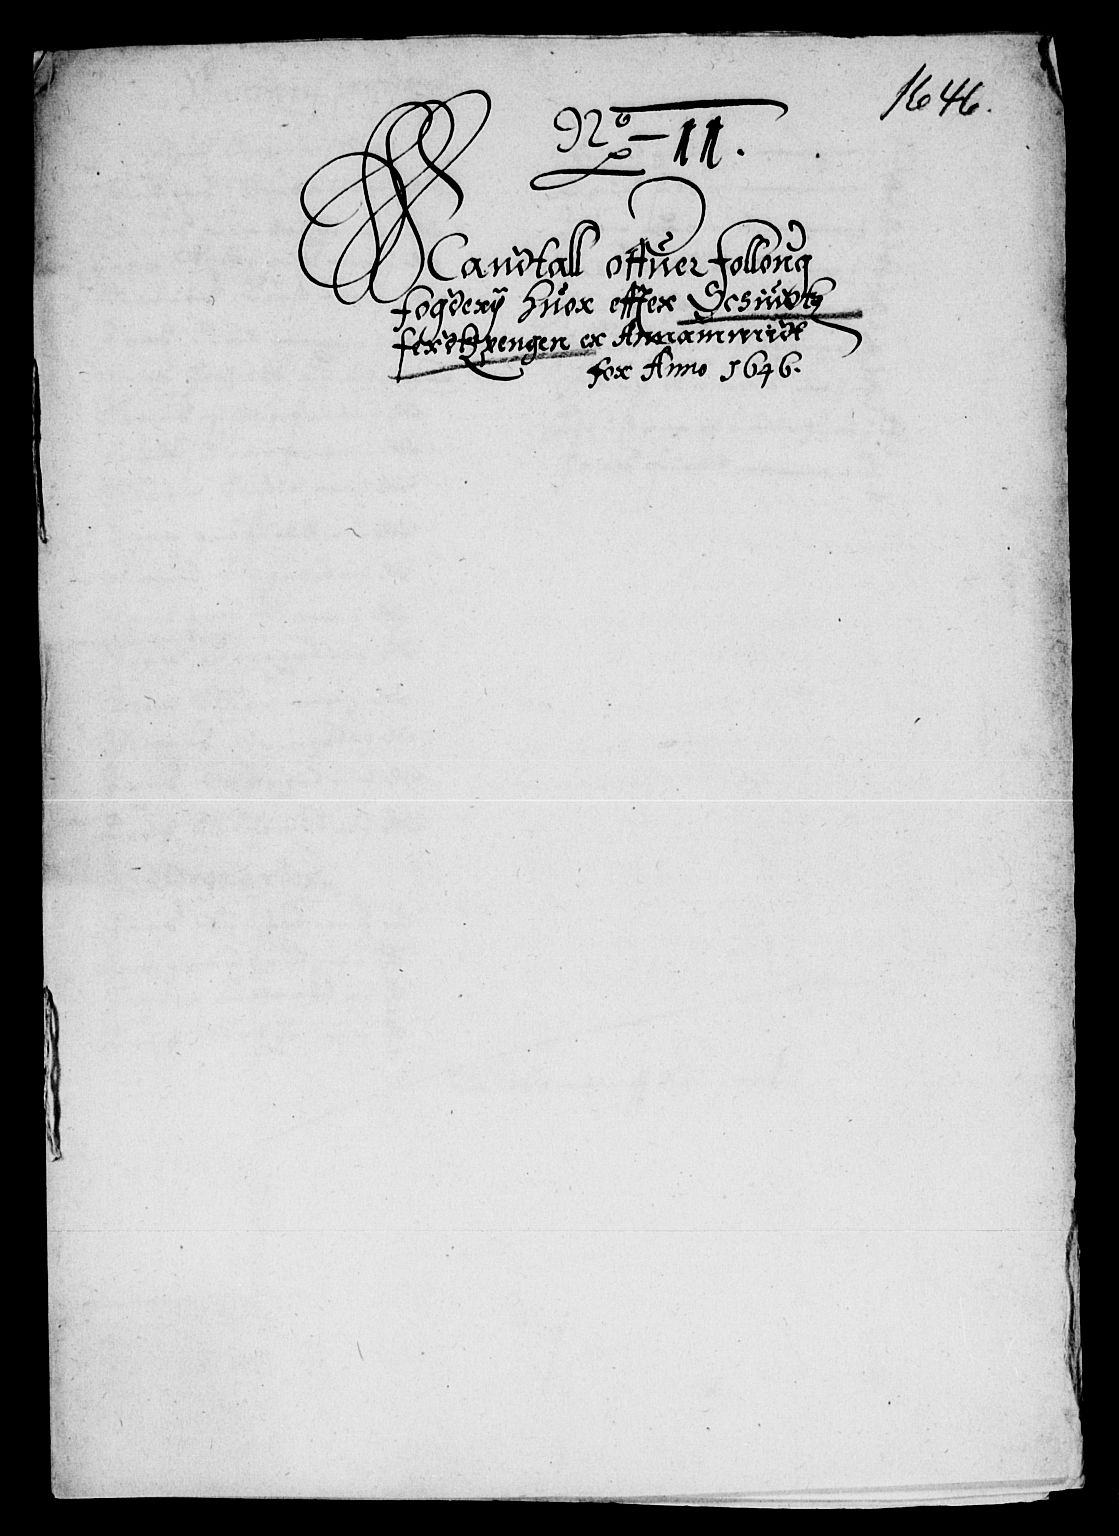 1646.
No – 11.
Mandtall offuer folloug
fogderij huor effter Schiudtz
ferdtzpengen er Annammidt
for Anno 1646.